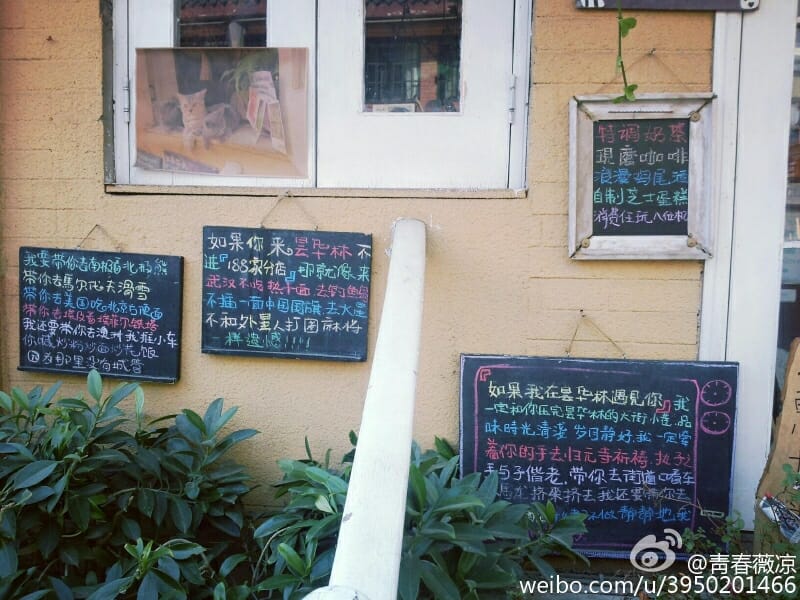 特调奶茶
現磨咖啡
浪漫鸡尾酒
自制芝士蛋糕
消费任玩八位机
我要带你去南极看北极熊
带你去馬尔代夫滑雪
带你去美国吃北京白便面
带你去埃及看埃菲尔铁塔
我还要带你去澳洲我推小车
你喊炒粉炒面炒花饭
因为那里没有城管
如果你来昙华林不
进『188家分店』那就像来
武汉不吃热干面去钓鱼島
不插一面中国国旗去火星
不和外星人打困麻将
一样遗憾!!!!
如果我在昙华林遇见你,我
一定和你压完昙华林的大街小巷,品
味時光清浅岁月静好,我一定牵
着你的手去归元寺祈祷,执子之
手与子偕老,带你去街道口看车
挤来挤去,我还要带你去
不做静静地,我
@青春薇凉
weibo.com/u/3950201466